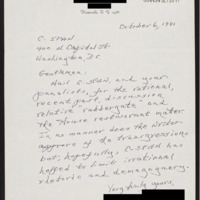 October 6, 1991
C-SPAN
400 N Capitol St.
Washington, DC
Gentlemen:
Hail C-SPAN, and your
panalists, for the rational,
recent past, discussion
relative "rubbergate" and
the House restaurant matter.
In no manner does the writer
approve of the transgressions
but, hopefully, C-SPAN has
helped to limit irrational
rhetoric and demagoguery.
Very truly yours,